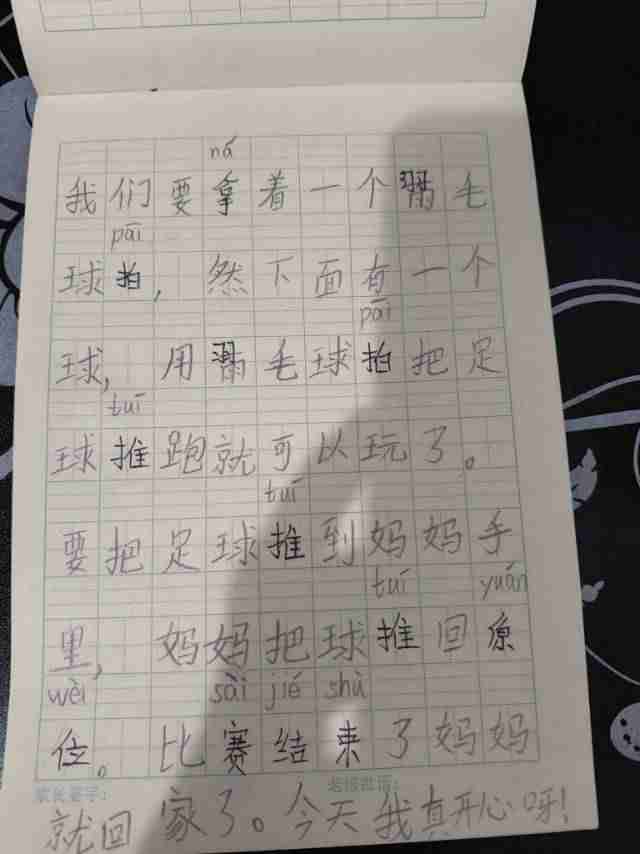 ná
我们要拿着一个羽毛
pāi
球拍,然下面有一个
pāi
球,用羽毛球拍把足
tuī
球推跑就可以玩了。
tuī
要把足球推到妈妈手
tuī yuán
里,妈妈把球推回原
wèi sài jié shù
位。比赛结束了妈妈
家长签字: 老师批语:
就回家了。今天我真开心呀!